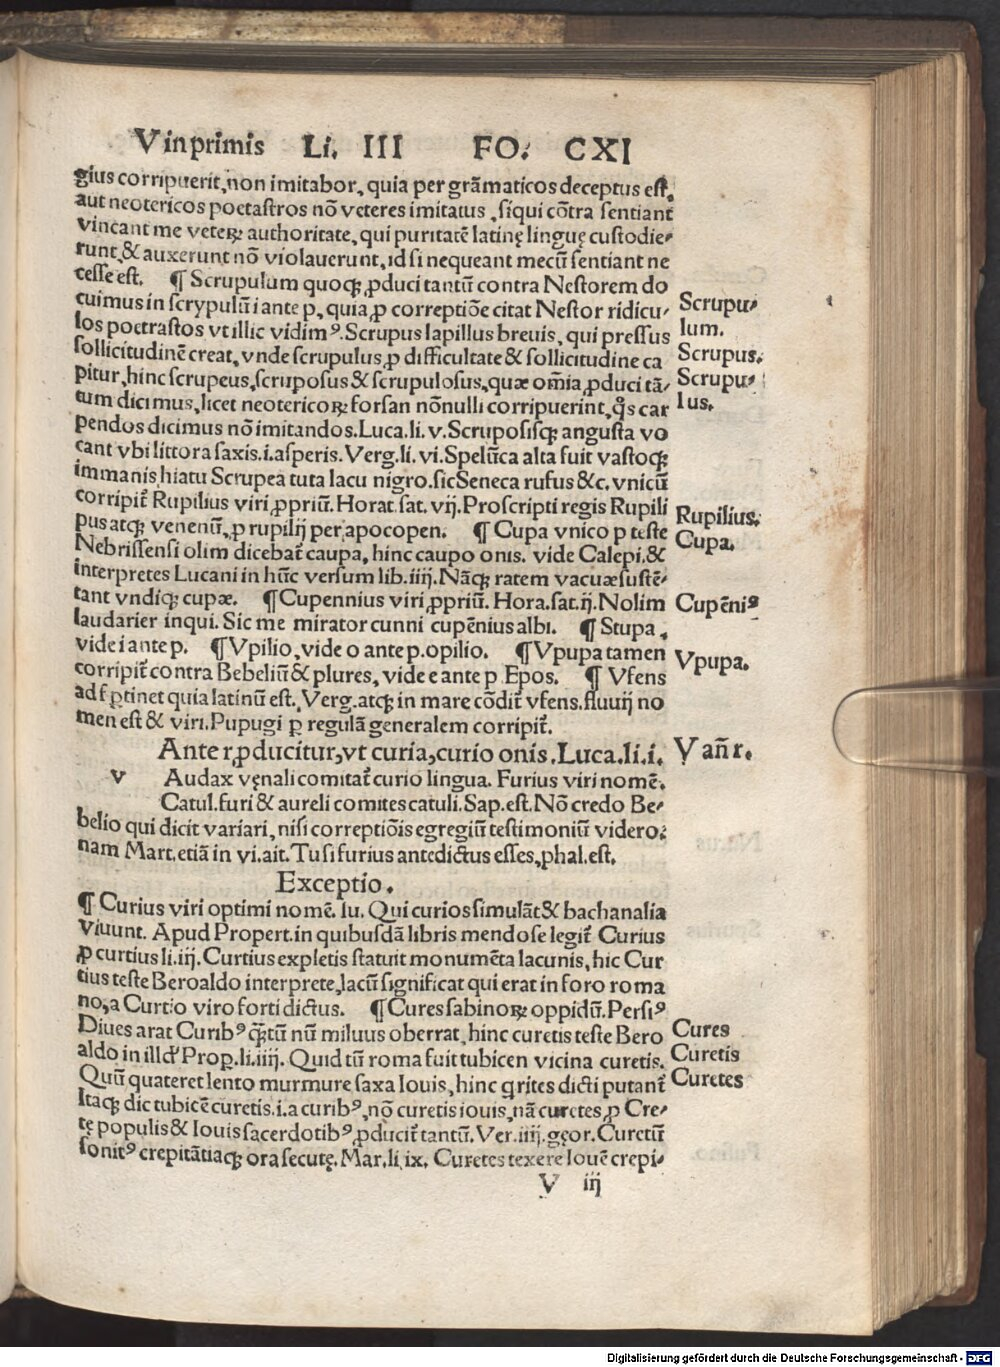 V in primis Li. III FO. CXI
gius corripuerit, non imitabor, quia per grāmaticos deceptus est,
aut neotericos poetastros nō veteres imitatus, siqui cōtra sentiant
vincant me veterꝝ authoritate, qui puritatē latinę linguę custodie⸗
runt, & auxerunt nō violauerunt, id si nequeant mecū sentiant ne
cesse est. ¶ Scrupulum quoqꝫ ꝓduci tantū contra Nestorem do
cuimus in scrypulū i ante p, quia ꝓ correptiōe citat Nestor ridicu⸗
los poetrastos vt illic vidimꝰ. Scrupus lapillus breuis, qui pressus
sollicitudinē creat, vnde scrupulus ꝓ difficultate & sollicitudine ca
pitur, hinc scrupeus, scruposus & scrupulosus, quæ om̄ia ꝓduci tā⸗
tum dicimus, licet neotericoꝝ forsan nōnulli corripuerint, q̄s car
pendos dicimus nō imitandos. Luca. li. v. Scruposisqꝫ angusta vo
cant vbi littora saxis. i. asperis. Verg. li. vi. Spelūca alta fuit vastoqꝫ
immanis hiatu Scrupea tuta lacu nigro. sic Seneca rufus & c. vnicū
corripit̄ Rupilius viri ꝓpriū. Horat. sat. vij. Proscripti regis Rupili
pus atqꝫ venenū, ꝓ rupilij per apocopen. ¶ Cupa vnico p teste
Nebrissensi olim dicebat̄ caupa, hinc caupo onis. vide Calepi. &
interpretes Lucani in hūc versum lib. iiij. Nāqꝫ ratem vacuæ sustē⸗
tant vndiqꝫ cupæ. ¶ Cupennius viri ꝓpriū. Hora. sat. ij. Nolim
laudarier inqui. Sic me mirator cunni cupēnius albi. ¶ Stupa,
vide i ante p. ¶ Vpilio, vide o ante p. opilio. ¶ Vpupa tamen
corripit̄ contra Bebeliū & plures, vide e ante p Epos. ¶ Vfens
ad f ꝑtinet quia latinū est. Verg. atqꝫ in mare cōdit̄ vfens. fluuij no
men est & viri. Pupugi ꝑ regulā generalem corripit̄.
Ante r ꝓducitur, vt curia, curio onis. Luca. li. i.
v Audax vęnali comitat̄ curio lingua. Furius viri nomē.
Catul. furi & aureli comites catuli. Sap. est. Nō credo Be⸗
belio qui dicit variari, nisi correptiōis egregiū testimoniū videro:
nam Mart. etiā in vi. ait. Tu si furius antedictus esses, phal. est.
Exceptio.
¶ Curius viri optimi nomē. Iu. Qui curios simulāt & bachanalia
viuunt. Apud Propert. in quibusdā libris mendose legit̄ Curius
ꝓ curtius li. iij. Curtius expletis statuit monumēta lacunis, hic Cur
tius teste Beroaldo interprete, lacū significat qui erat in foro roma
no, a Curtio viro forti dictus. ¶ Cures sabinoꝝ oppidū. Persiꝰ
Diues arat Curibꝰ q̄tū nū miluus oberrat, hinc curetis teste Bero
aldo in illd' Prop. li. iiij. Quid tū roma fuit tubicen vicina curetis.
Quū quateret lento murmure saxa Iouis, hinc q̇rites dicti putant̄
Itaqꝫ dic tubicē curetis. i. a curibꝰ, nō curetis iouis, nā curetes, ꝓ Cre⸗
tę populis & Iouis sacerdotibꝰ, ꝓducit̄ tantū. Ver. iiij. geor. Curetū
sonitꝰ crepitātiaqꝫ ora secutę. Mar. li. ix. Curetes texere Iouē crepi⸗
V iij
Scrupu⸗
lum.
Scrupus.
Scrupu⸗
lus.
Rupilius.
Cupa.
Cupēniꝰ
Vpupa.
V añ r.
Cures
Curetis
Curetes
Digitalisierung gefördert durch die Deutsche Forschungsgemeinschaft - DFG